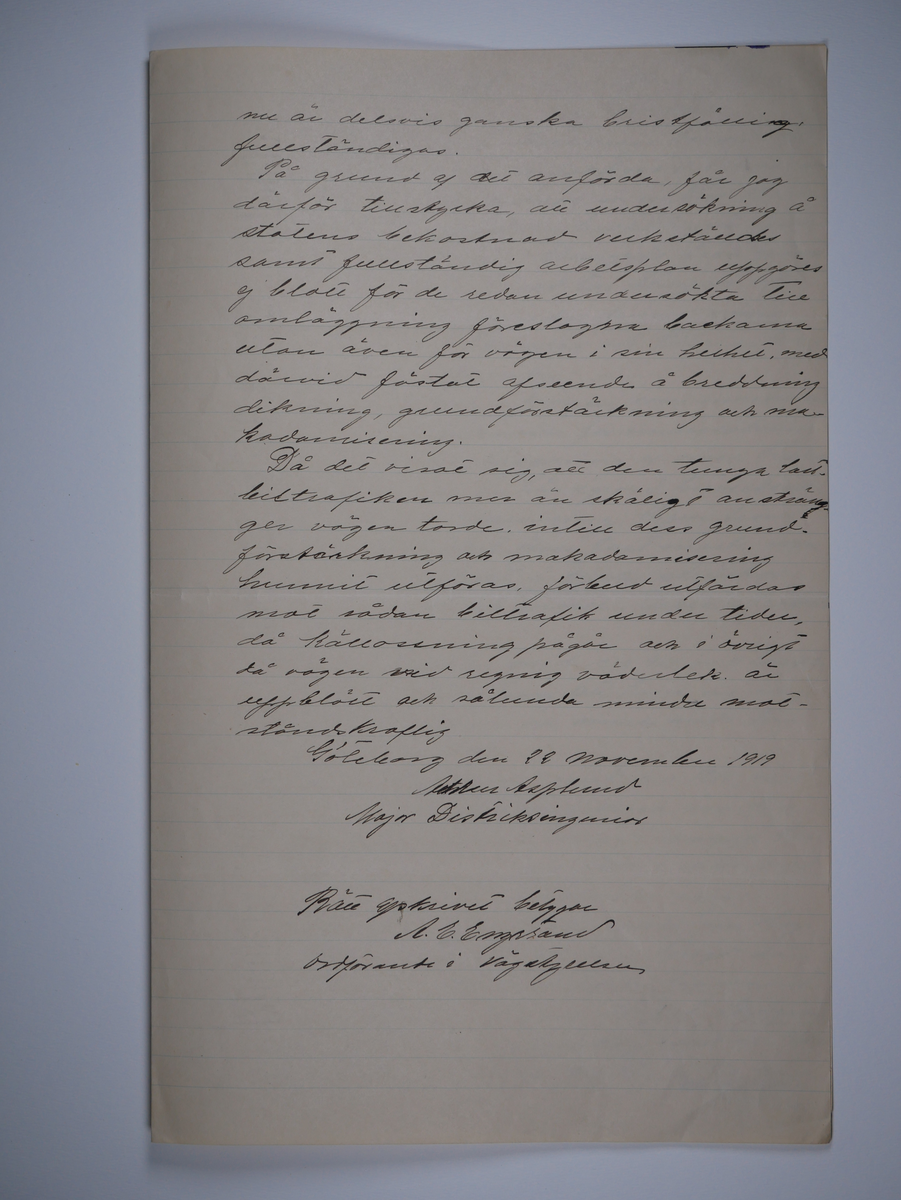 nu är delsvis ganska bristfällig,
fullständigas.
På grund af det anförda, får jag
därför tillstyrka, att undersökning å
statens bekostnad verkställes
samt fullständig arbetsplan uppgöres
ej blott för de redan undersökta till
omläggning föreslagna backarna
utan även för vägen i sin helhet, med
därvid fästat afseende å breddning
dikning, grundförstärkning och ma-
kadamisering.
Då det visat sig, att den tunga last-
biltrafiken mer än skäligt ansträn-
ger vägen torde, intill dess grund-
förstärkning och makadamisering
hunnit utföras, förbud utfärdas
mot sådan biltrafik under tider,
då källossning pågår och i övrigt
då vägen vid regnig väderlek är
uppblött och sålunda mindre mot-
ståndskraftig
Göteborg den 22 november 1919
Arthur Asplund
Major Distriksingeniör
Rätt afskrivet betygar
A. E. Engstrand
Ordförande i Vägstyrelsen